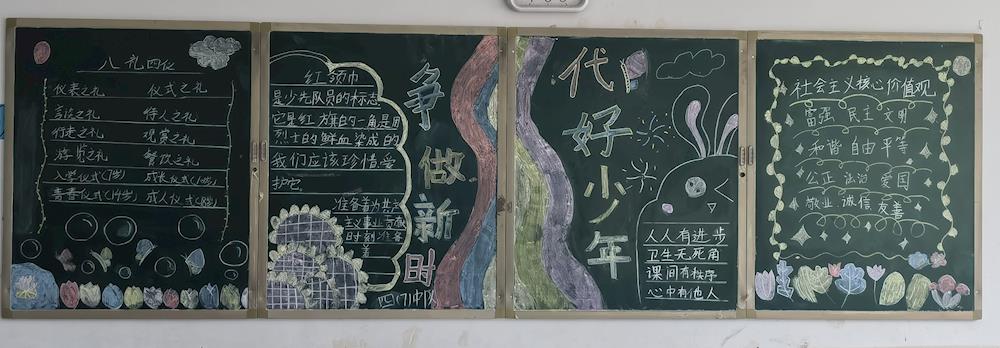 八礼四仪
仪表之礼 仪式之礼
言谈之礼 待人之礼
行走之礼 观赏之礼
游览之礼 餐饮之礼
入学仪式(7岁) 成长仪式(10岁)
青春仪式(14岁) 成人仪式(18岁)
红领巾
是少先队员的标志
它是红旗的一角是用
烈士的鲜血染成的
我们应该珍惜爱
护它
准备着为共产
主义事业贡献
时刻准备
着
四(1)中队
争做新时
代好少年
人人有进步
卫生无死角
课间有秩序
心中有他人
社会主义核心价值观
富强 民主 文明
和谐 自由 平等
公正 法治 爱国
敬业 诚信 友善